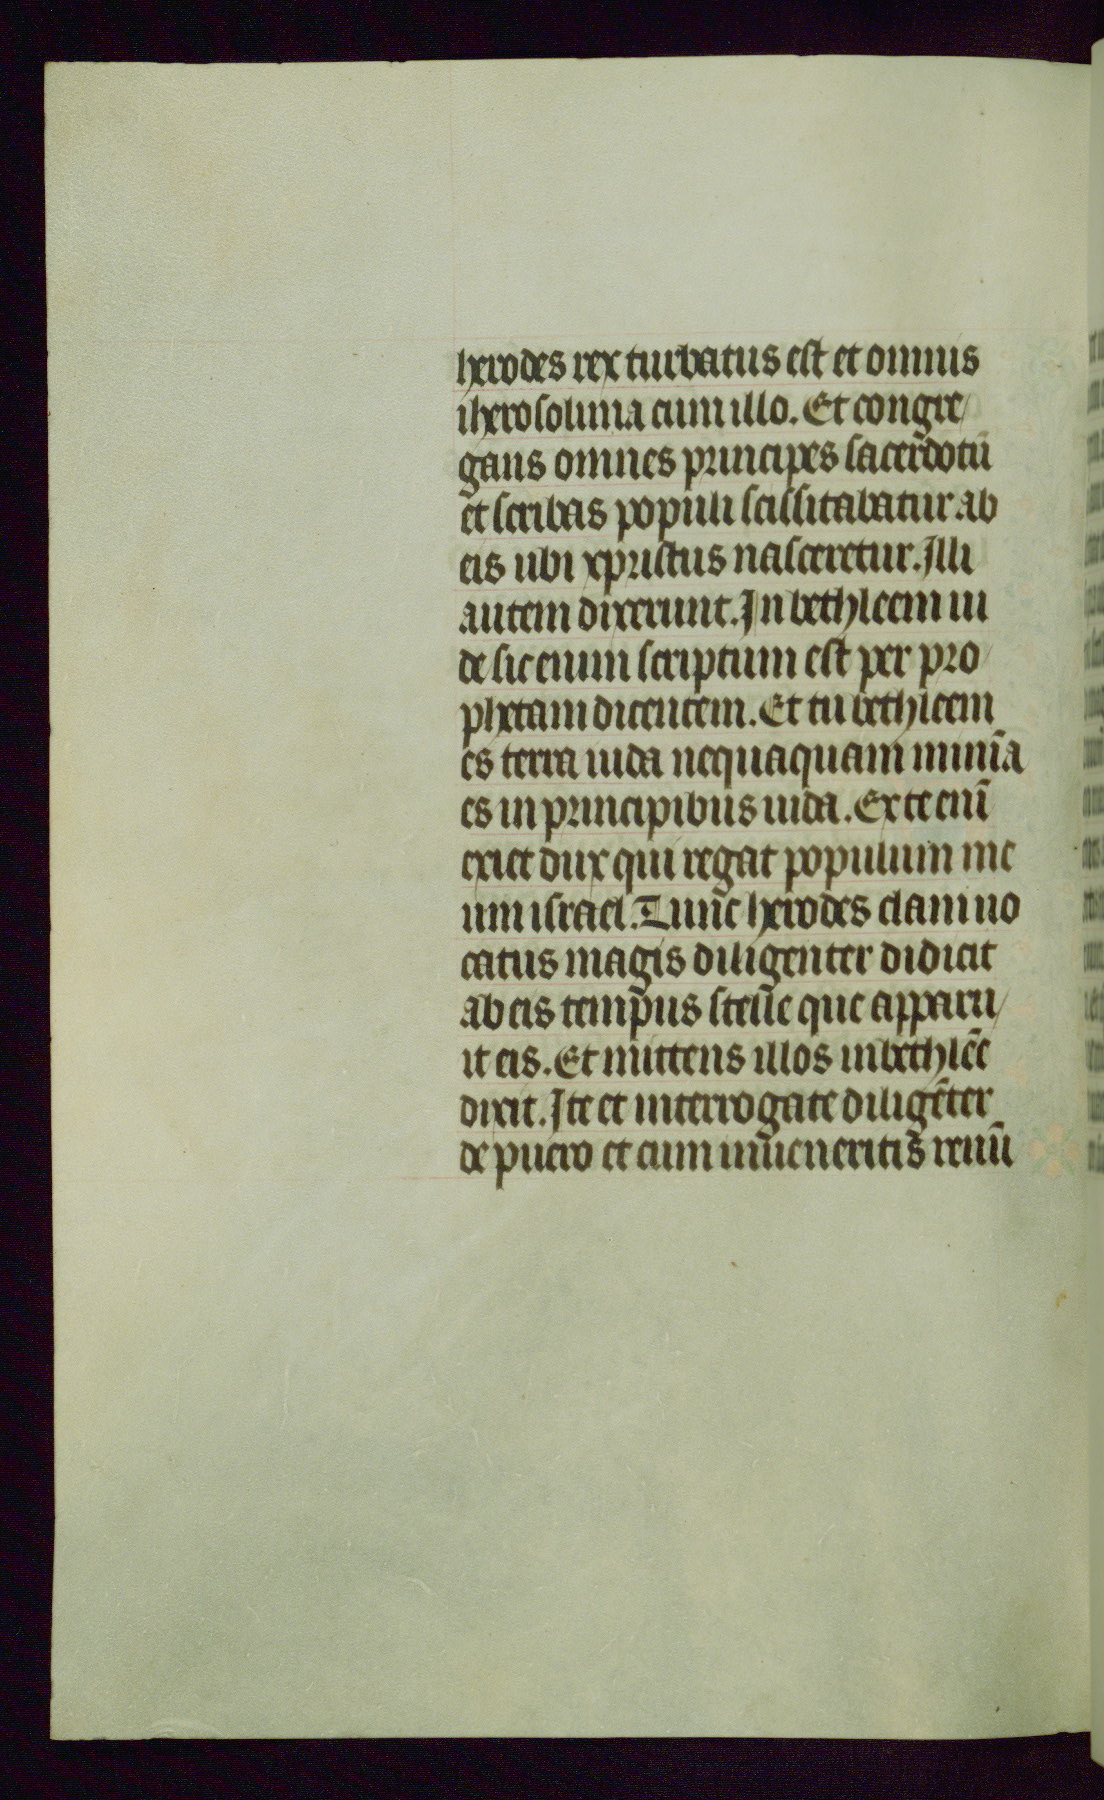 herodes rex turbatus est et omnis
iherosolima cum illo. Et congre/
gans omnes principes sacerdotū
et scribas populi scissitabatur ab
eis ubi xpristus nasceretur. Illi
autem dixerunt. In bethleem iu
de sic enim scriptum est per pro
phetam dicentem. Et tu bethleem
es terra iuda nequaquam minīa
es in principibus iuda. Ex te enī
exiet dux qui regat populum me
um israel. Tunc herodes clam uo
catus magis diligenter didicit
ab eis tempus stelle que apparu/
it eis. Et mittens illos in bethlēē
dixit. Ite et interrogate diligēter
de puero et cum inueneritis renū